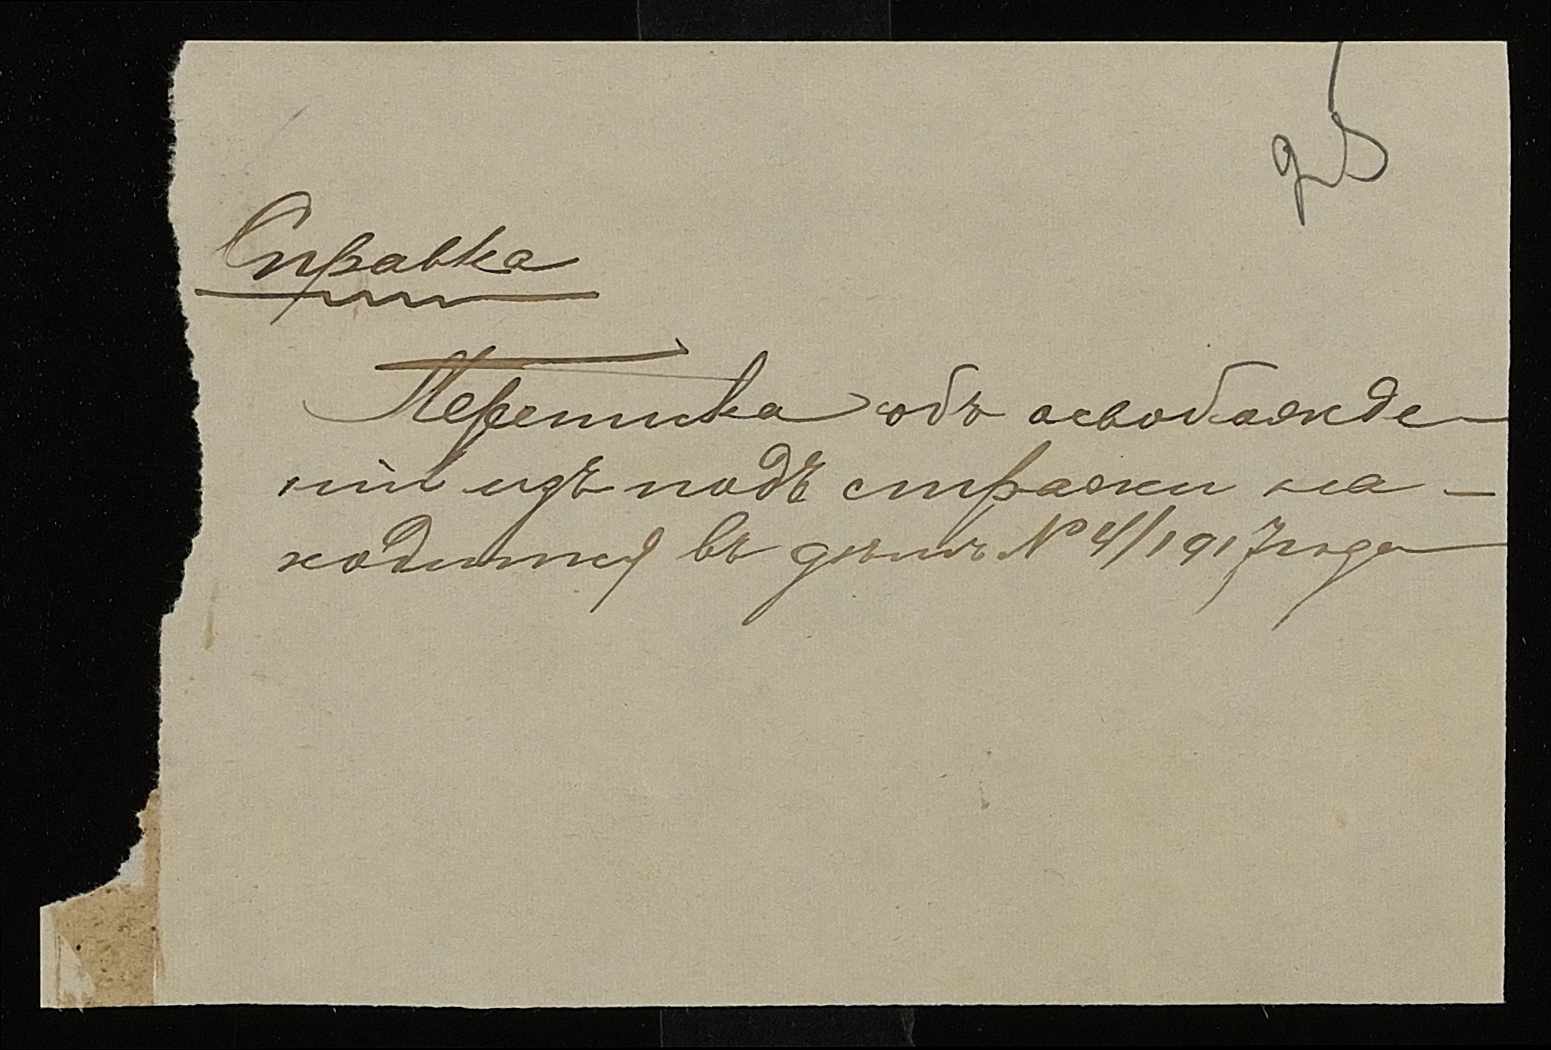 Справка
Переписка объ освобожде-
нiи изъ подъ стражи на-
ходится въ дѣлѣ № 4/1917 года